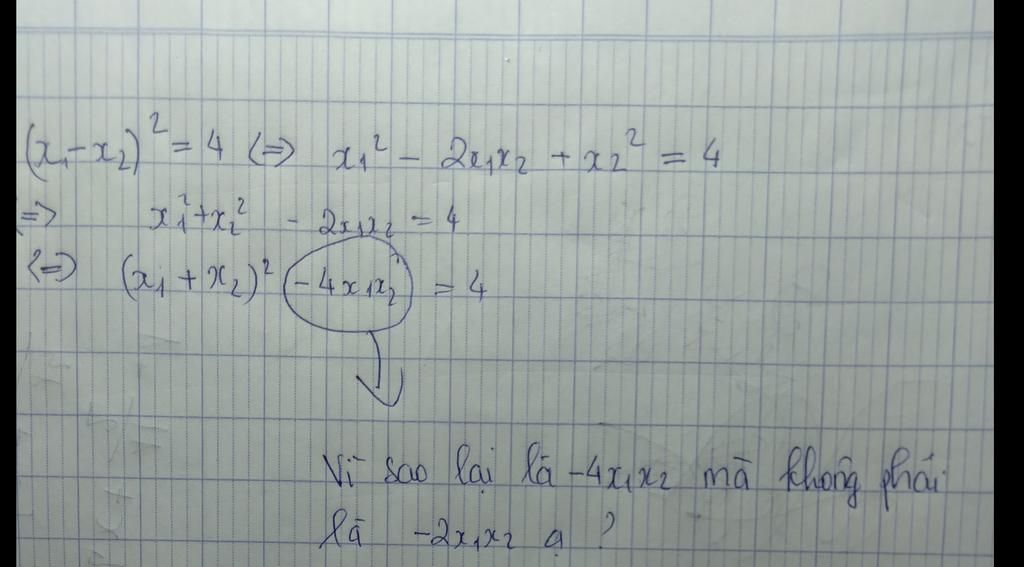 (x₁-x₂)² = 4 (=> x₁² - 2x₁x₂ + x₂² = 4
(=> x₁²+x₂² - 2x₁x₂ = 4
(=> (x₁ + x₂)² - 4x₁x₂ = 4
Vì sao lại là -4x₁x₂ mà không phải
là -2x₁x₂ ạ ?